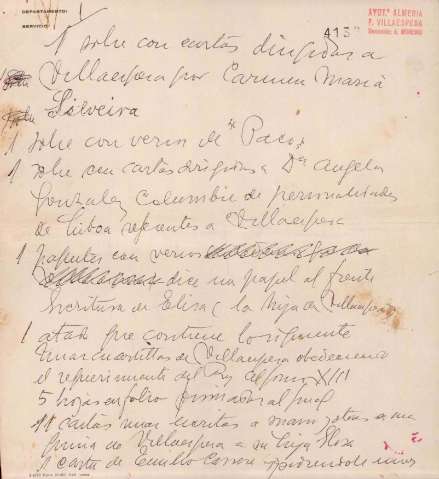 DEPARTAMENTO:
SERVICIO:
AYDT.º ALMERIA
F. VILLAESPESA
Donación: A. MORENO
413
1 sobre con cartas dirigidas a
1 Villaespesa por Carmen Maria
Silveira
1 sobre con versos de "Paco"
1 sobre con cartas dirigidas a Dª Angeles
Gonzalez Columbie de personalidades
de Lisboa referentes a Villaespesa
1 papeles con versos
dice un papel al frente
Escritura de Elisa (la hija de Villaespesa)
1 atado que contiene lo siguiente
Unas cuartillas de Villaespesa obedeciendo
el requerimiento del Rey Alfonso XIII
5 hojas en folio
11 cartas unas escritas a mano y otras a
de Villaespesa a su hija Elisa
1 carta de Emilio pidiendole unos